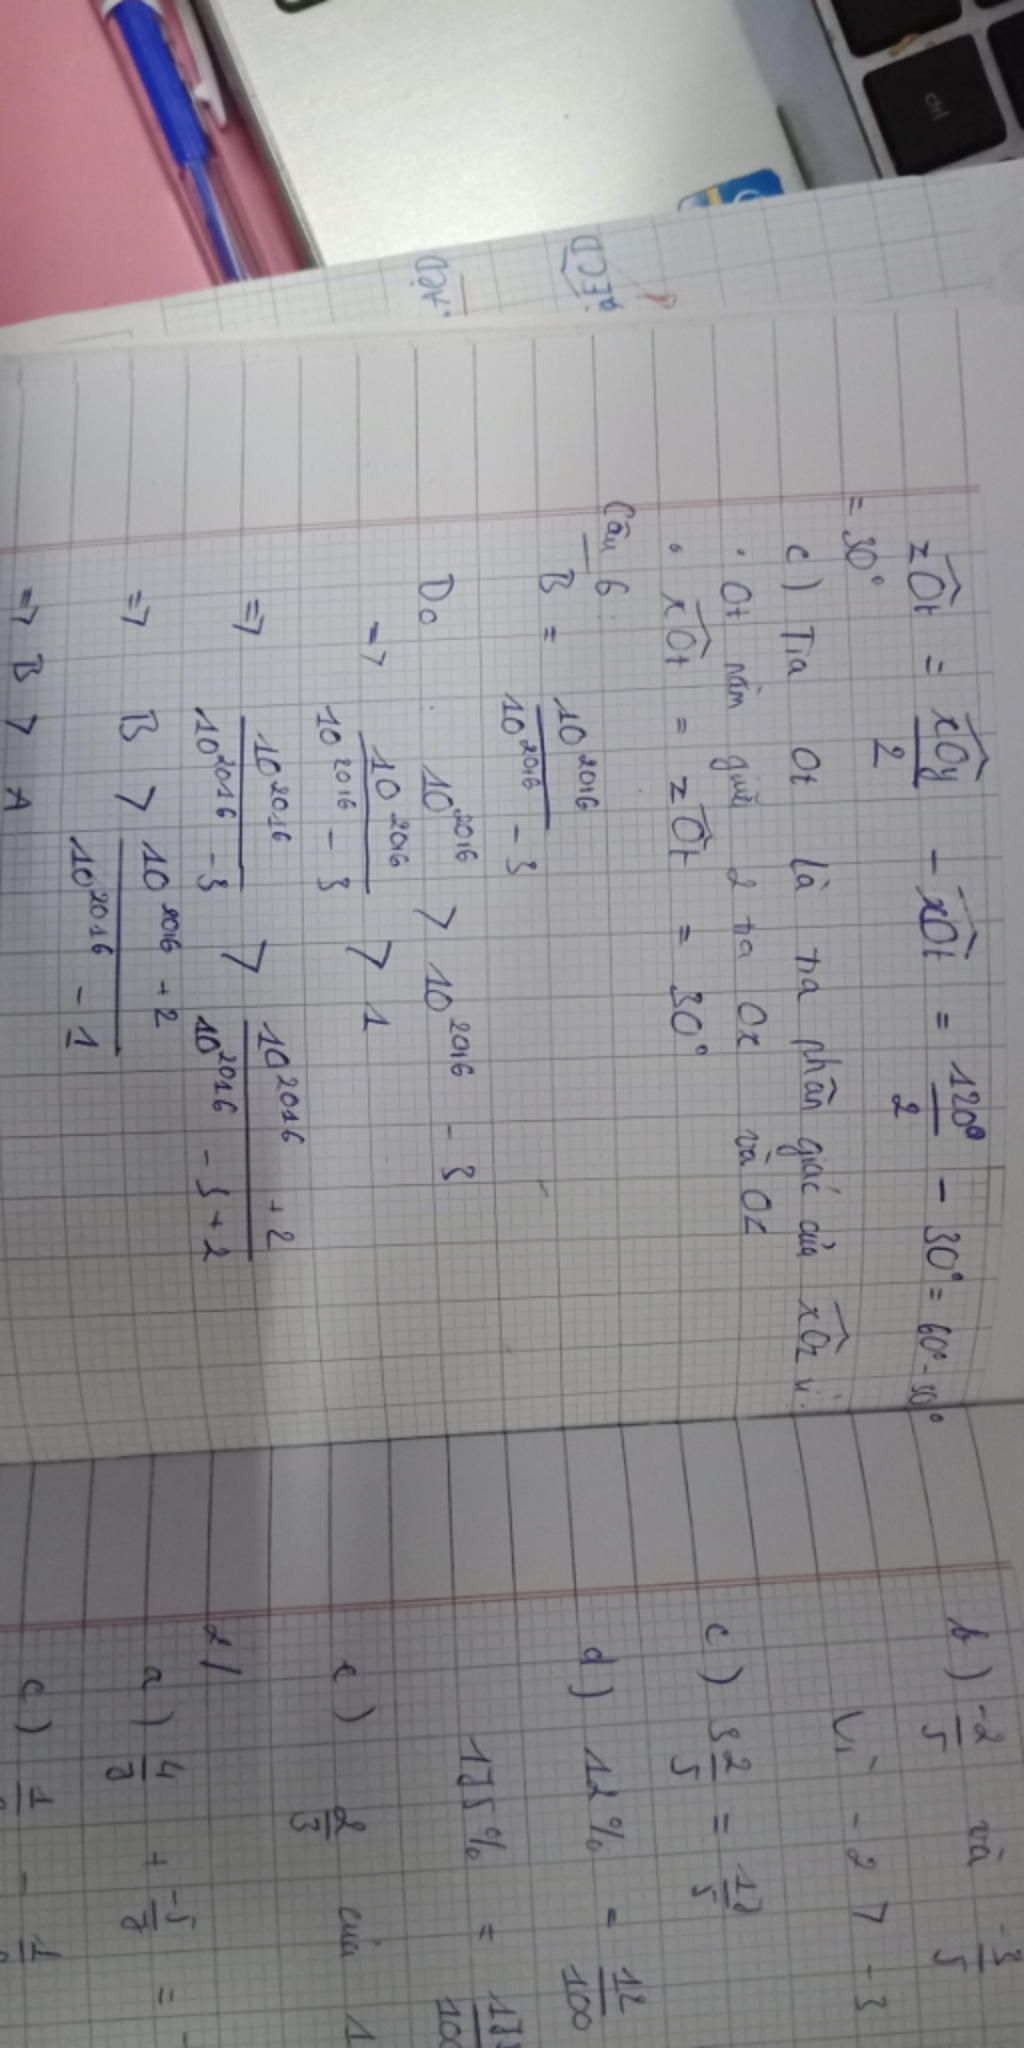 zÔt = xÔy/2 - xÔt = 120°/2 - 30° = 60° - 30°
= 30°
c) Tia Ot là tia phân giác của xÔz vì:
• Ot nằm giữa 2 tia Ox và Oz
• xÔt = zÔt = 30°
Câu 6:
B = 10^2016/(10^2016 - 3)
Do 10^2016 > 10^2016 - 3
=> 10^2016/(10^2016 - 3) > 1
=> 10^2016/(10^2016 - 3) > (10^2016 + 2)/(10^2016 - 3 + 2)
=> B > (10^2016 + 2)/(10^2016 - 1)
=> B > A
b) -2/5 và -3/5
Vì -2 > -3
c) 3 2/5 = 17/5
d) 12% = 12/100
175% = 175/100
e) 2/3 của 1
2/
a) 4/7 + -5/7 = -
c) 1 - 1
ctrl